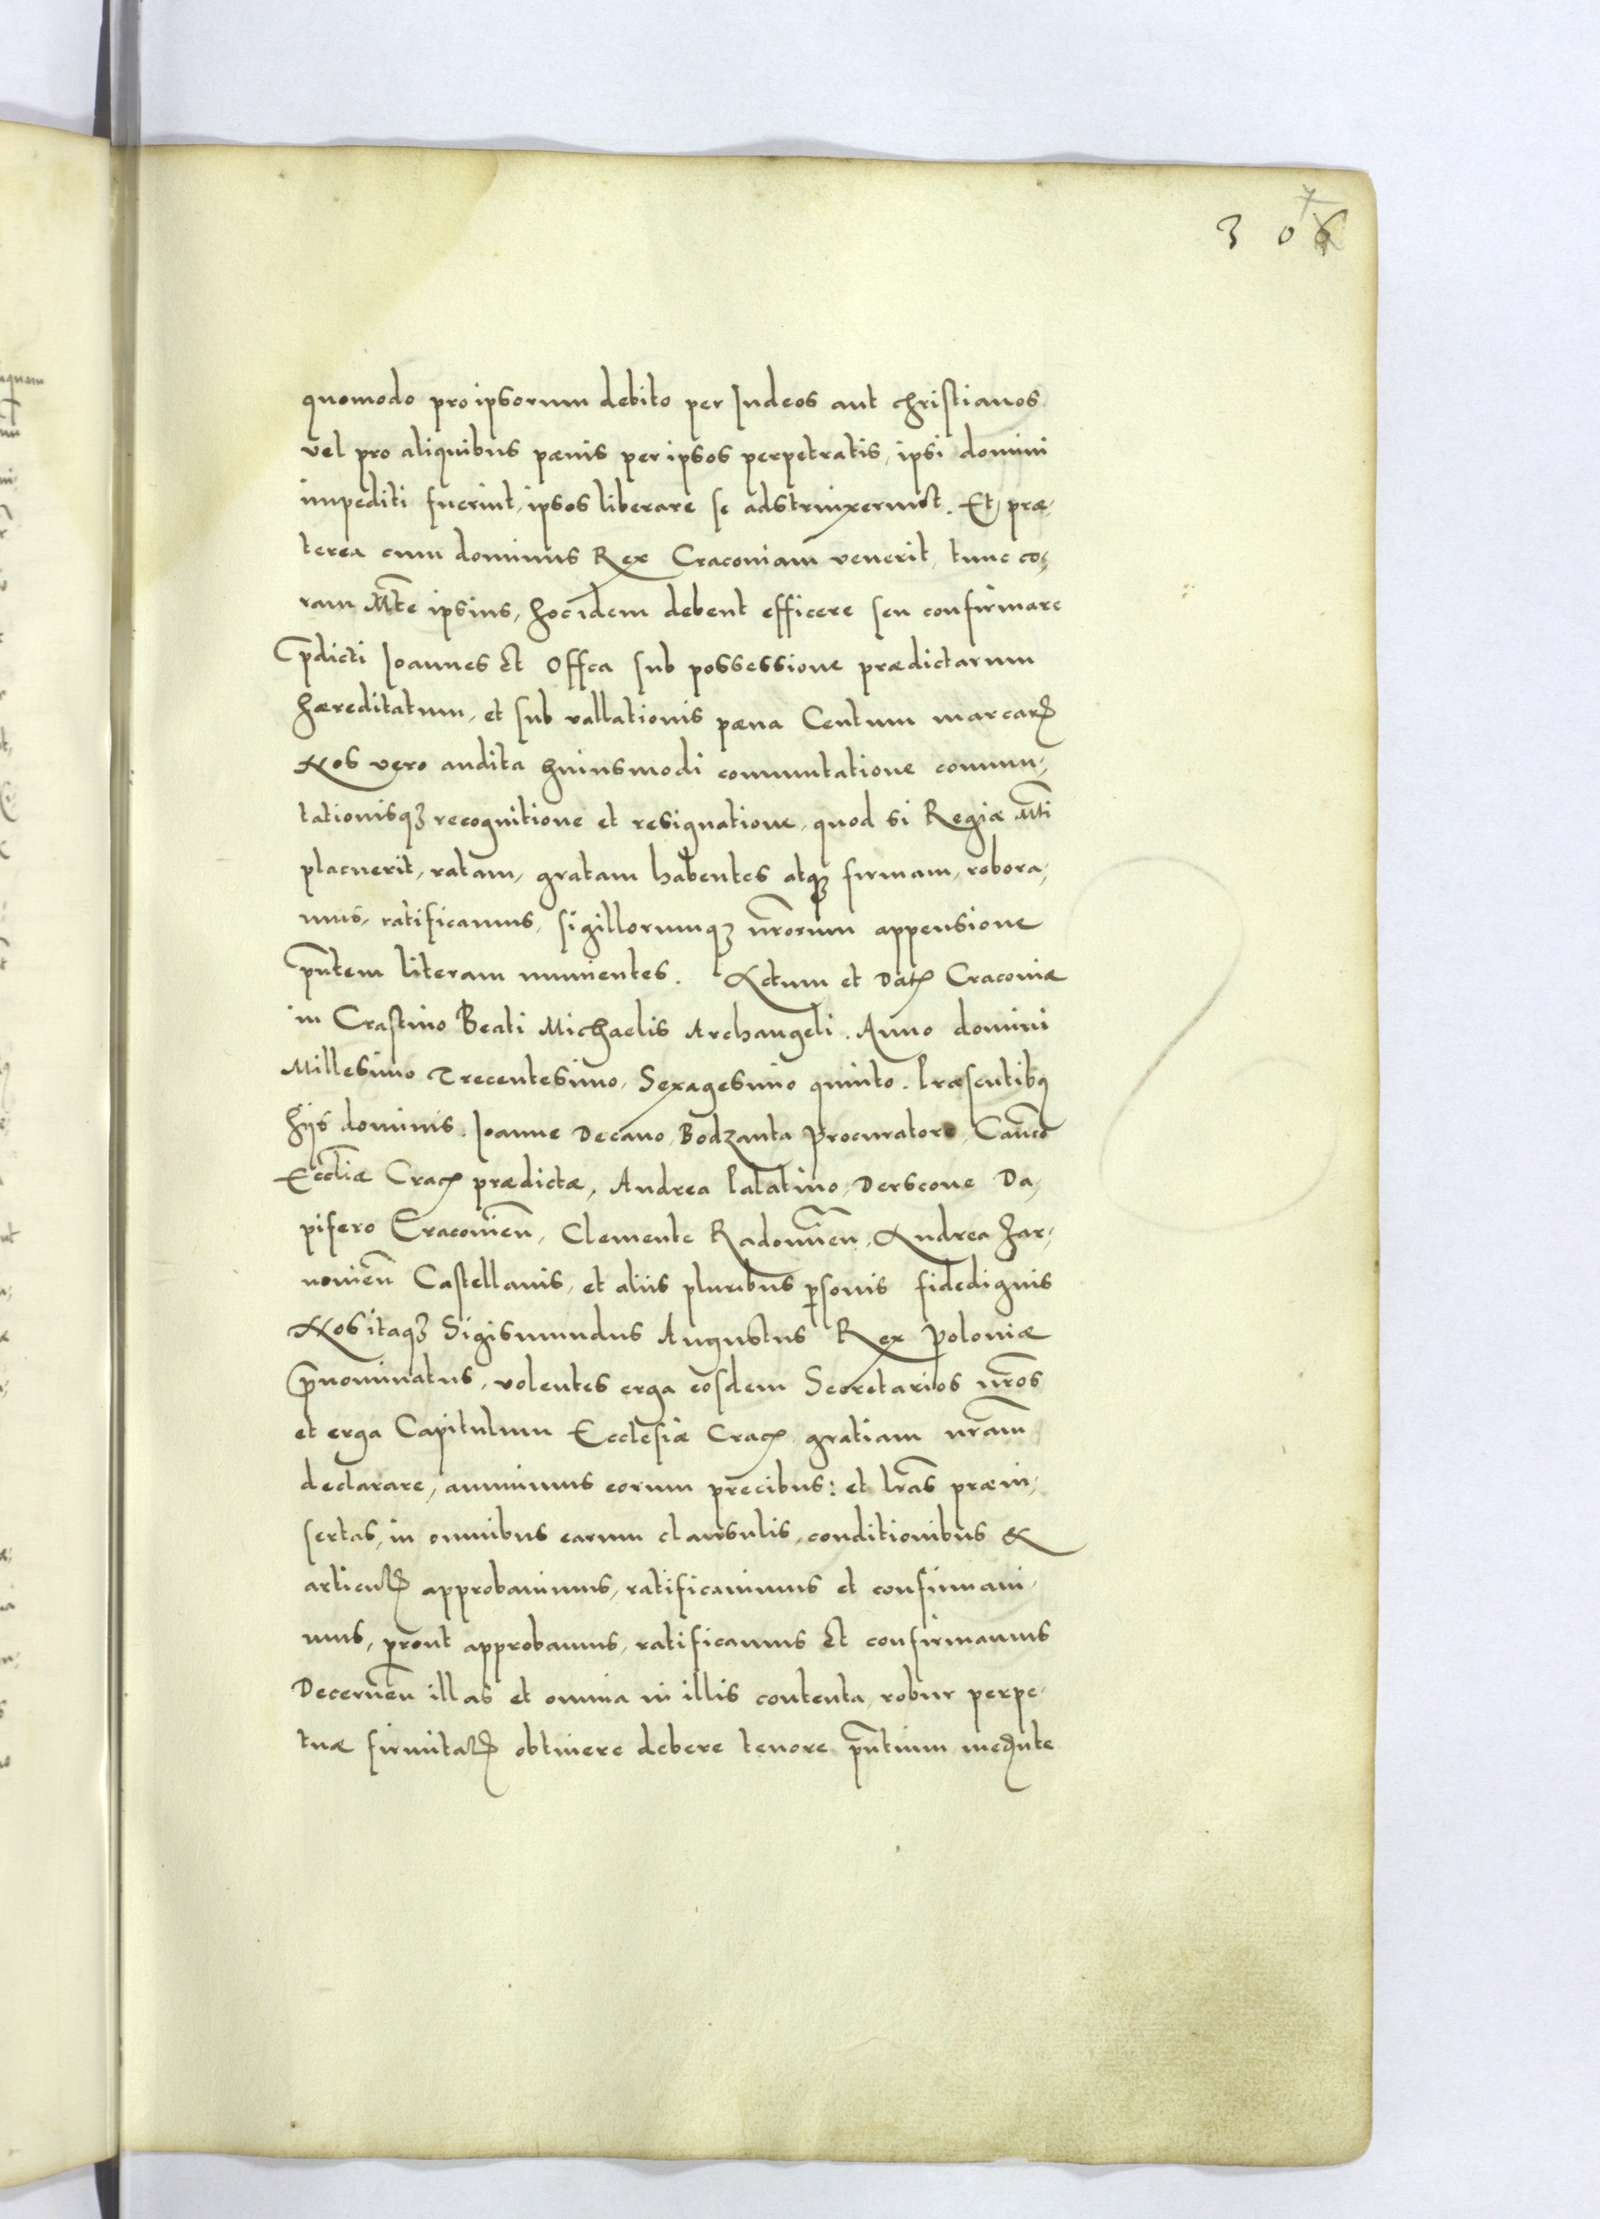 306
7
quomodo pro ipsorum debito per Iudeos aut christianos
vel pro aliquibus pænis per ipsos perpetratis, ipsi domini
impediti fuerint, ipsos liberare se adstrinxerunt. Et præ,
terea cum dominus Rex Cracoviam venerit, tunc co,
ram Mte ipsius, hoc idem debent efficere seu confirmare
pdicti Ioannes et Offca sub possessione prædictarum
hæreditatum, et sub vallationis pæna Centum marcarum
Nos vero audita huiusmodi commutatione commu,
tationisq3 recognitione et resignatione, quod si Regiæ Mti
placuerit, ratam, gratam habentes atq3 firmam, robora,
mus, ratificamus, sigillorumq3 nrorum appensione
pntem literam munientes. Actum et Dat Cracoviæ
in Crastino Beati Michaelis Archangeli. Anno domini
Millesimo Trecentesimo, Sexagesimo quinto. Præsentibus
hijs dominis. Ioanne Decano, Bodzanta Procuratore, Canco
Eccliæ Crac prædictæ, Andrea Palatino, Derscone Da,
pifero Cracovien, Clemente Radomien, Andrea Zar,
novien Castellanis, et aliis pluribus psonis fidedignis
Nos itaq3 Sigismundus Augustus Rex Poloniæ
prnominatus, volentes erga eosdem Secretarios nros
et erga Capitulum Ecclesiæ Crac gratiam nram
declarare, annuimus eorum precibus: et lras præin,
sertas, in omnibus earum clausulis, conditionibus et
articulis approbavimus, ratificavimus et confirmavi,
mus, prout approbamus, ratificamus et confirmamus
Decernen illas et omnia in illis contenta, robur perpe,
tuæ firmitatis obtinere debere tenore pntium mediante